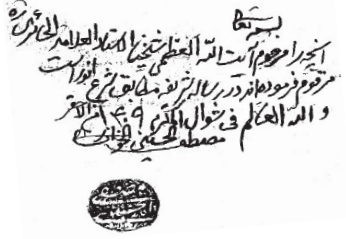 بسمه تعالی
آنچه را مرحوم آیت الله العظمی شیخنا الاستاد العلامه الحائری
مرقوم فرموده‌اند در رساله شریفه مطابق شرع انور است
و الله العالم فی شوال المکرم ۶۹ الاحقر
مصطفی الحسینی